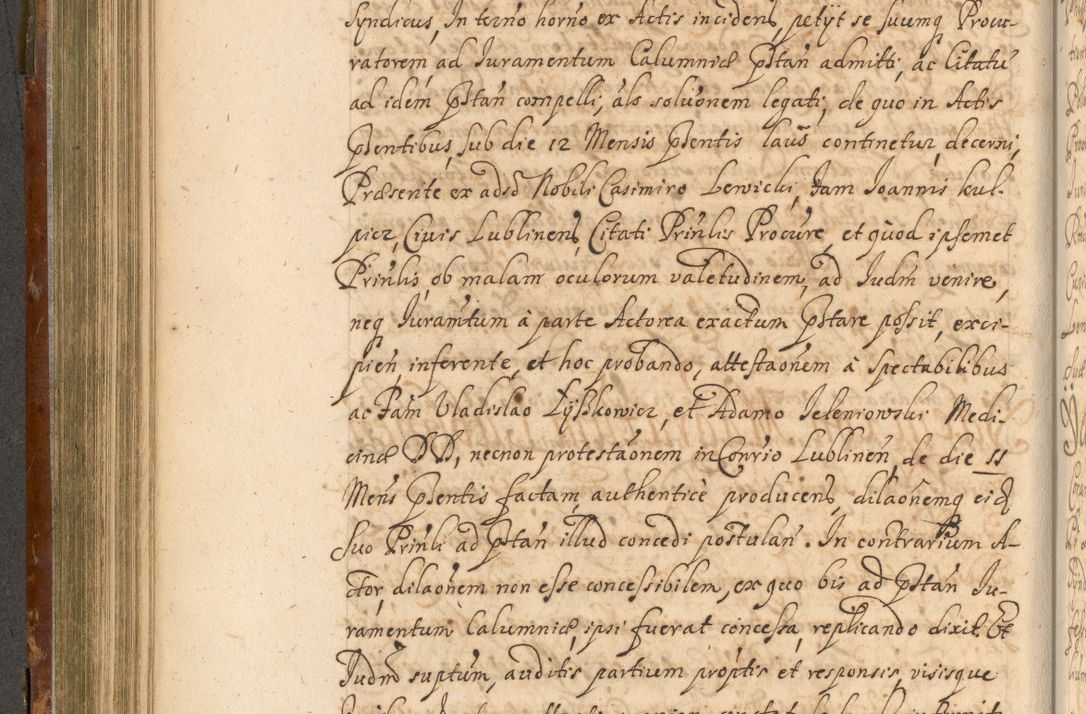 Syndicus, In terno horno ex Actis incidens, petyt se suumq Procu-
ratorem, ad Iuramentum Calumniæ pstan admitti, ac Citatu
ad idem pstan compelli, als solutonem legati, de quo in Actis
psentibus, sub die 12 Mensis psentis laus continetur, decerni,
Præsente ex adso Nobili Casimiro Lewicki, Fam Ioannis kul-
picz, Civis Lublinens, Citati Prinlis Procure, et quod ipsemet
Prinlis, ob malam oculorum valetudinem, ad Iudm venire,
neq Iuramtum à parte Actorea exactum pstare possit, exci-
pien, inferente, et hoc probando, attestaonem à Spectabilibus
ac Fam Vladislao Lyszkowicz, et Adamo Ieleniowski Medi-
cinæ DD, necnon protestaonem in Conrio Lublinen, de die 11
Mens psentis factam, authenticè producens, dilaonemq eid
suo Prinli ad pstan illud concedi postulan. In contrarium A-
ctor, dilaonem non esse concessibilem, ex quo bis ad pstan Iu-
ramentum Calumniæ, ipsi fuerat concessa, replicando dixit. Et
Iudm suptum, auditis partium proptis et responsis, visisque